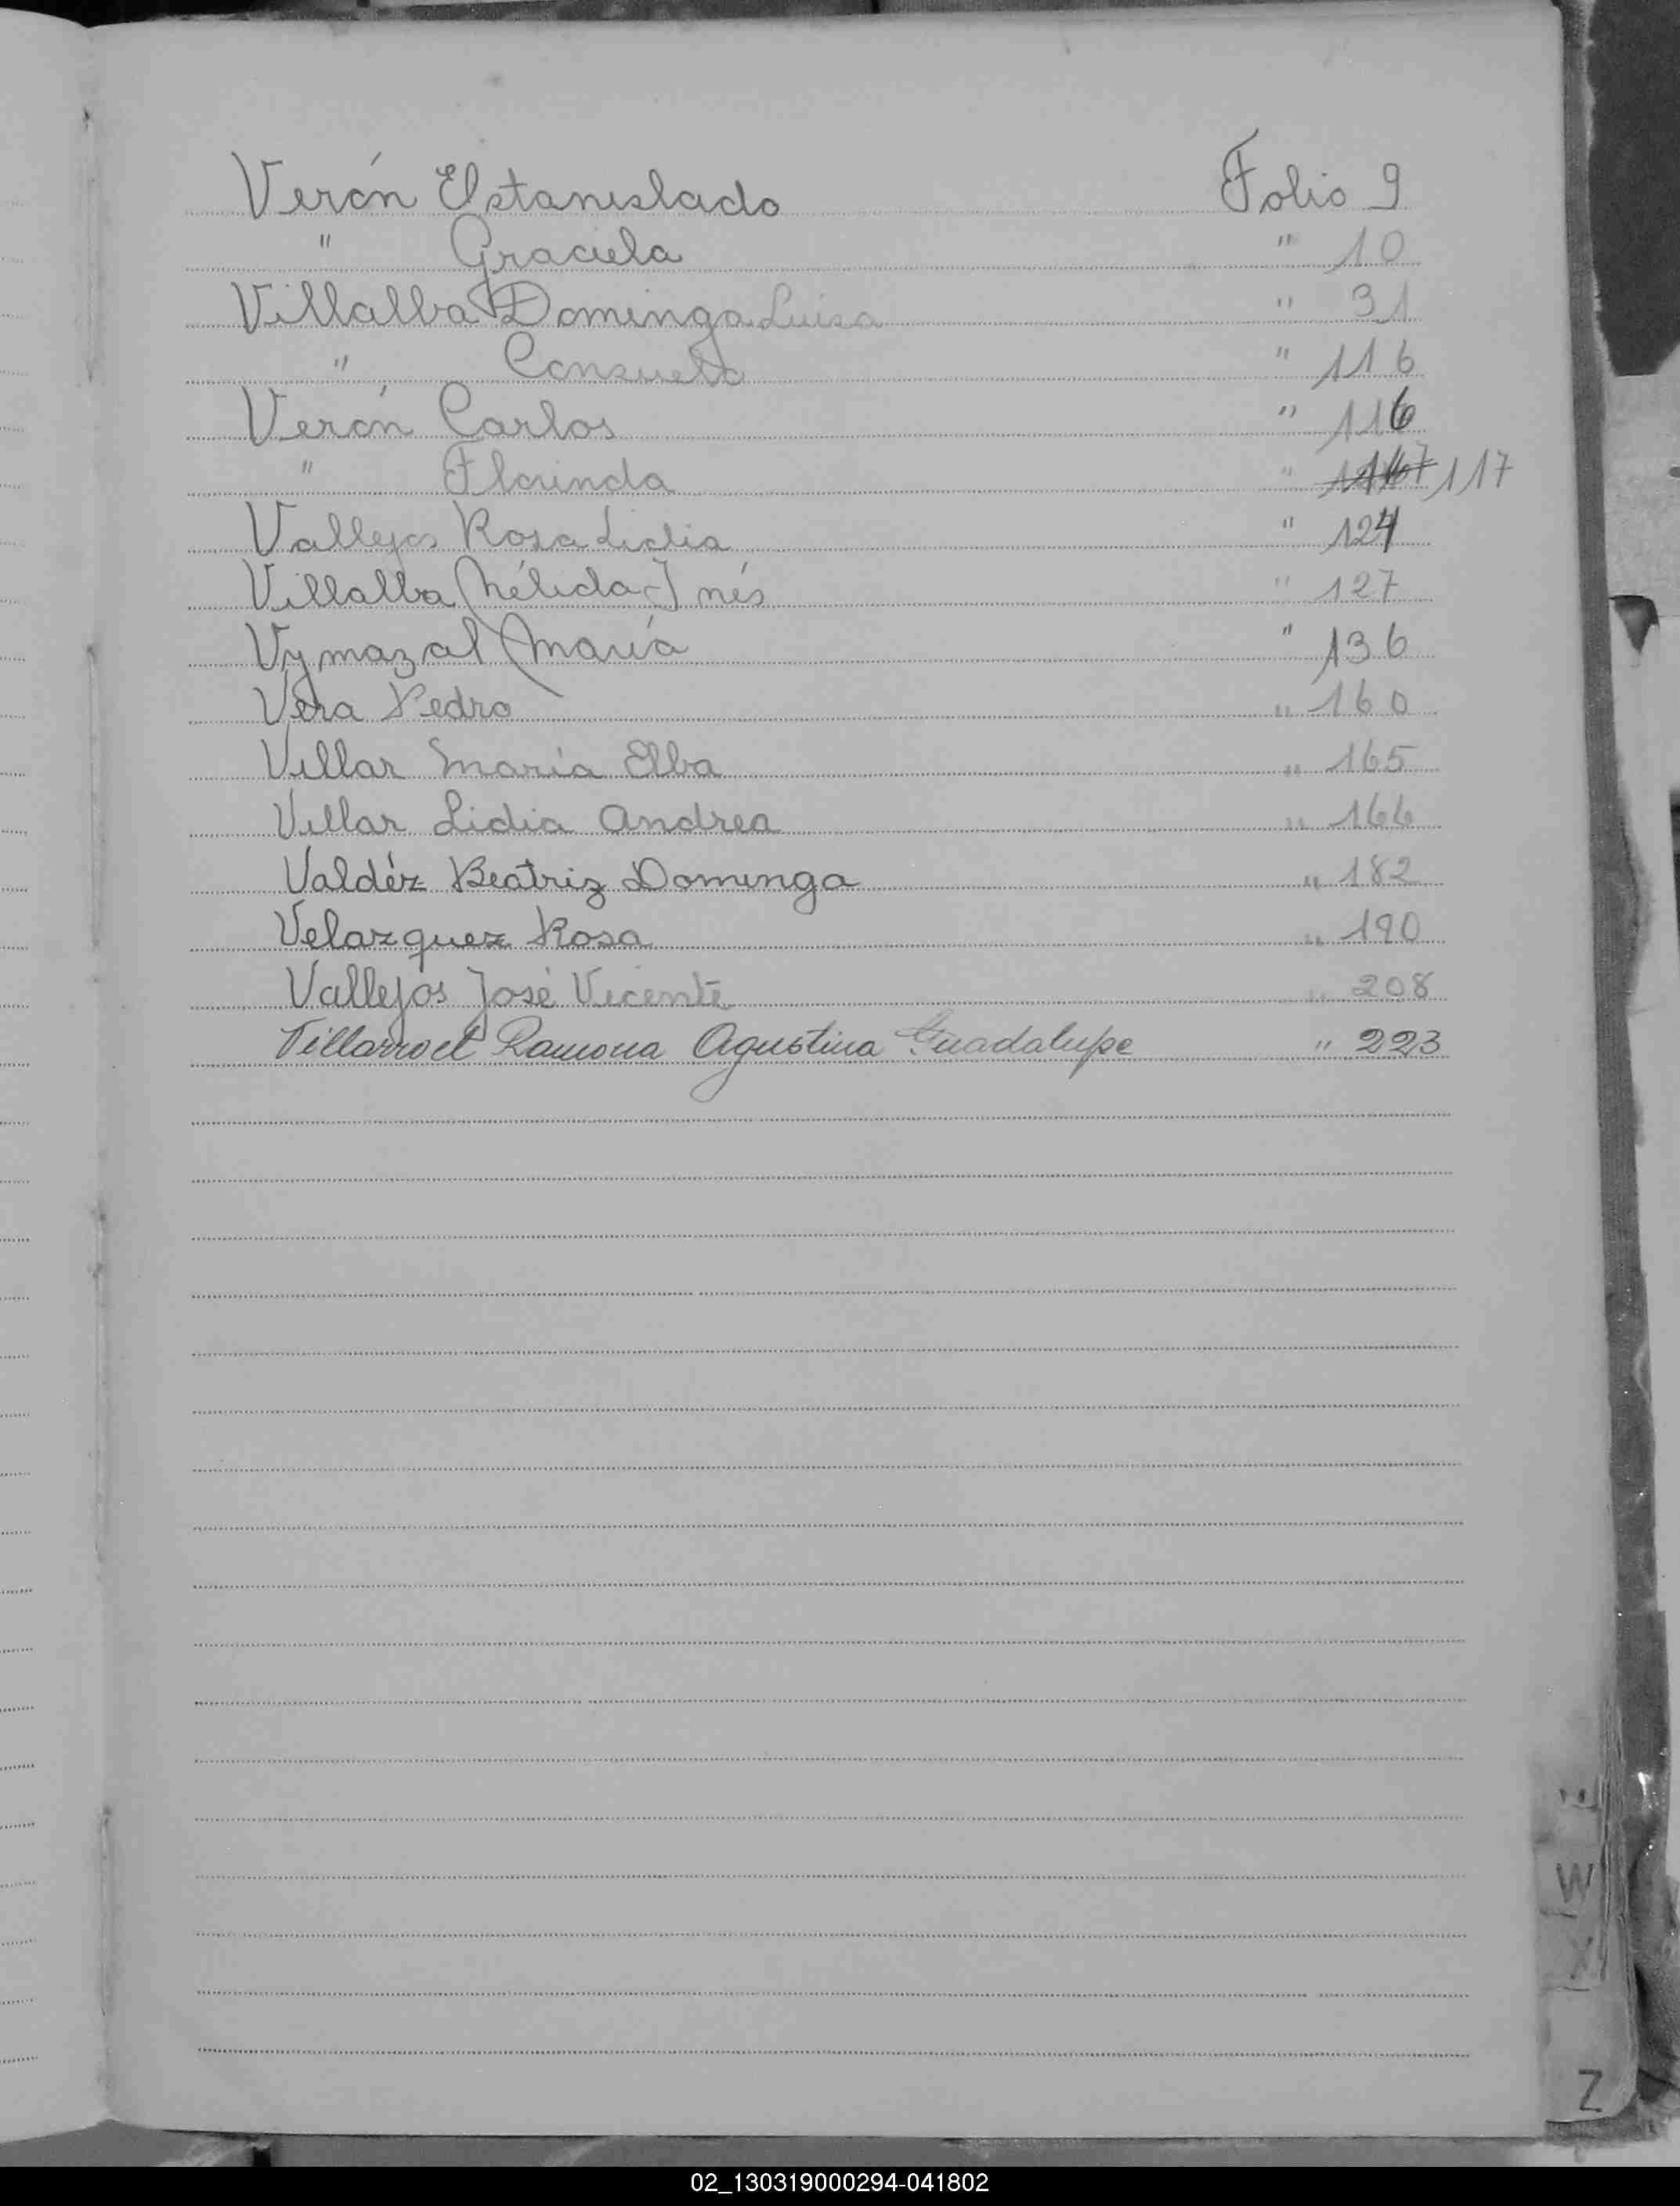 Verón Estanislado Folio 9
" Graciela " 10
Villalba Dominga Luisa " 31
" Consuelo " 116
Verón Carlos " 116
" Florinda " 117
Vallejos Rosa Lidia " 124
Villalba Nélida Inés " 127
Vymazal María " 136
Vera Pedro " 160
Villar María Elba " 165
Villar Lidia Andrea " 166
Valdéz Beatriz Dominga " 182
Velazquez Rosa " 190
Vallejos José Vicente " 208
Villarroel Ramona Agustina Guadalupe " 223
W
X
Z
02_130319000294-041802